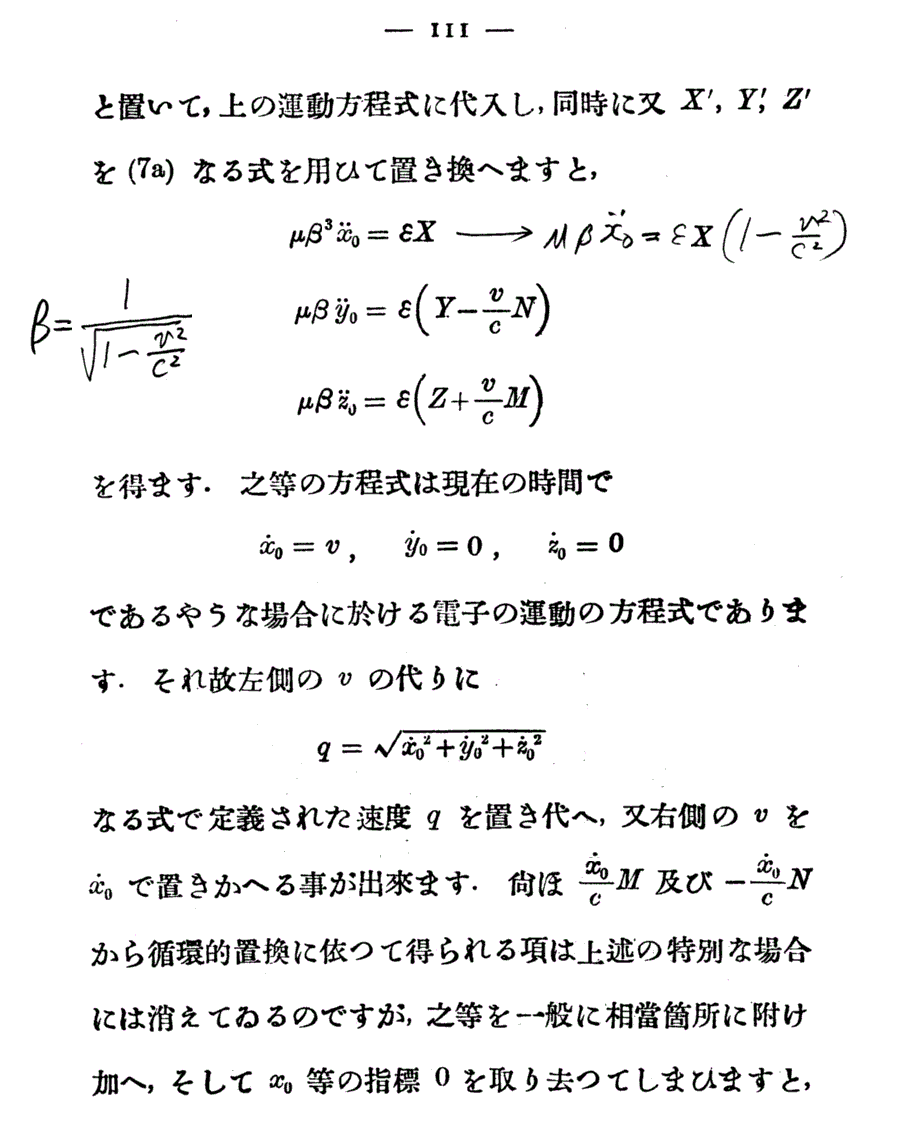 — III —
と置いて, 上の運動方程式に代入し, 同時に又 X′, Y′, Z′
を (7a) なる式を用ひて置き換へますと,
μβ³ẍ₀ = εX ⟶ μβẍ′₀ = εX(1 − v²/c²)
β = 1/√(1 − v²/c²)
μβÿ₀ = ε(Y − v/c N)
μβz̈₀ = ε(Z + v/c M)
を得ます. 之等の方程式は現在の時間で
ẋ₀ = v, ẏ₀ = 0, ż₀ = 0
であるやうな場合に於ける電子の運動の方程式でありま
す. それ故左側の v の代りに
q = √(ẋ₀² + ẏ₀² + ż₀²)
なる式で定義された速度 q を置き代へ, 又右側の v を
ẋ₀ で置きかへる事が出來ます. 尙ほ ẋ₀/c M 及び − ẋ₀/c N
から循環的置換に依つて得られる項は上述の特別な場合
には消えてゐるのですが, 之等を一般に相當箇所に附け
加へ, そして x₀ 等の指標 0 を取り去つてしまひますと,